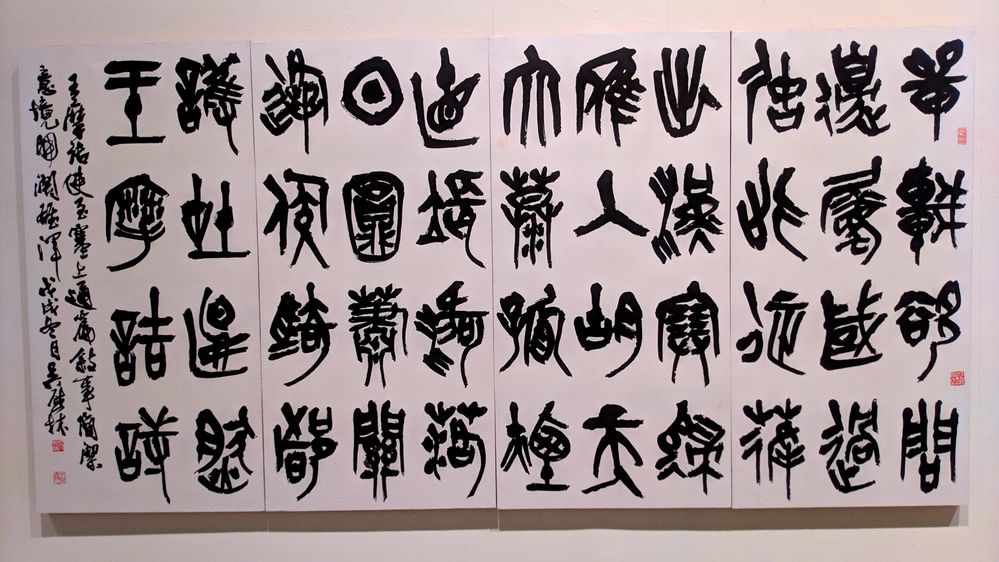 單車欲問
邊屬國過
居延征蓬
出漢塞歸
雁入胡天
大漠孤煙
直長河落
日圓蕭關
逢候騎都
護在燕然
王摩詰詩
王摩詰使至塞上通篇敘事簡潔
意境開闊雄渾 戊戌冬月吳